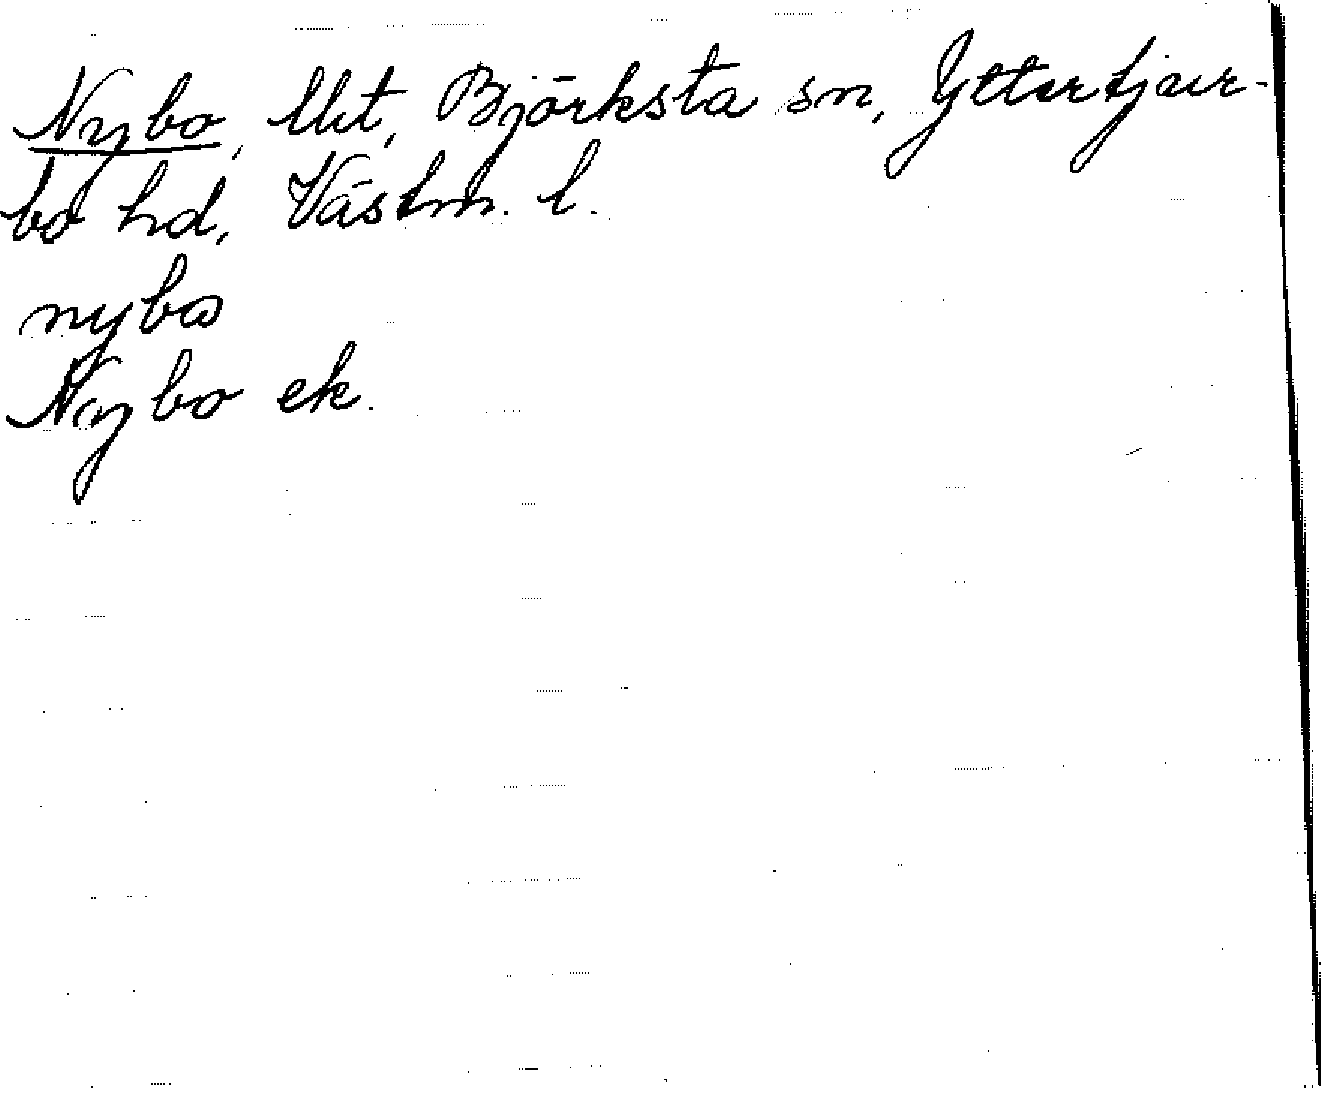 Nybo, lht, Björksta sn, Yttertjur-
bo hd, Västm. l.
nybω
Nybo ek.